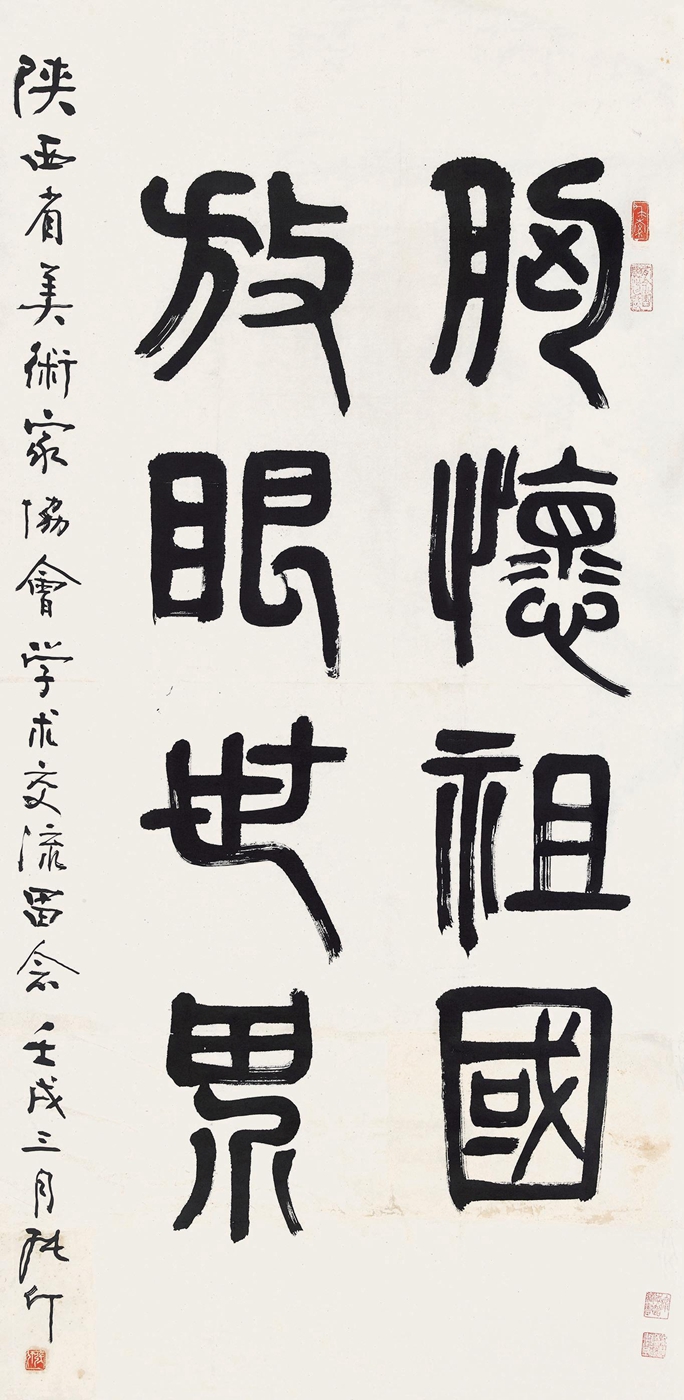 胸懷祖國
放眼世界
陝西省美術家協會学术交流留念 壬戌三月